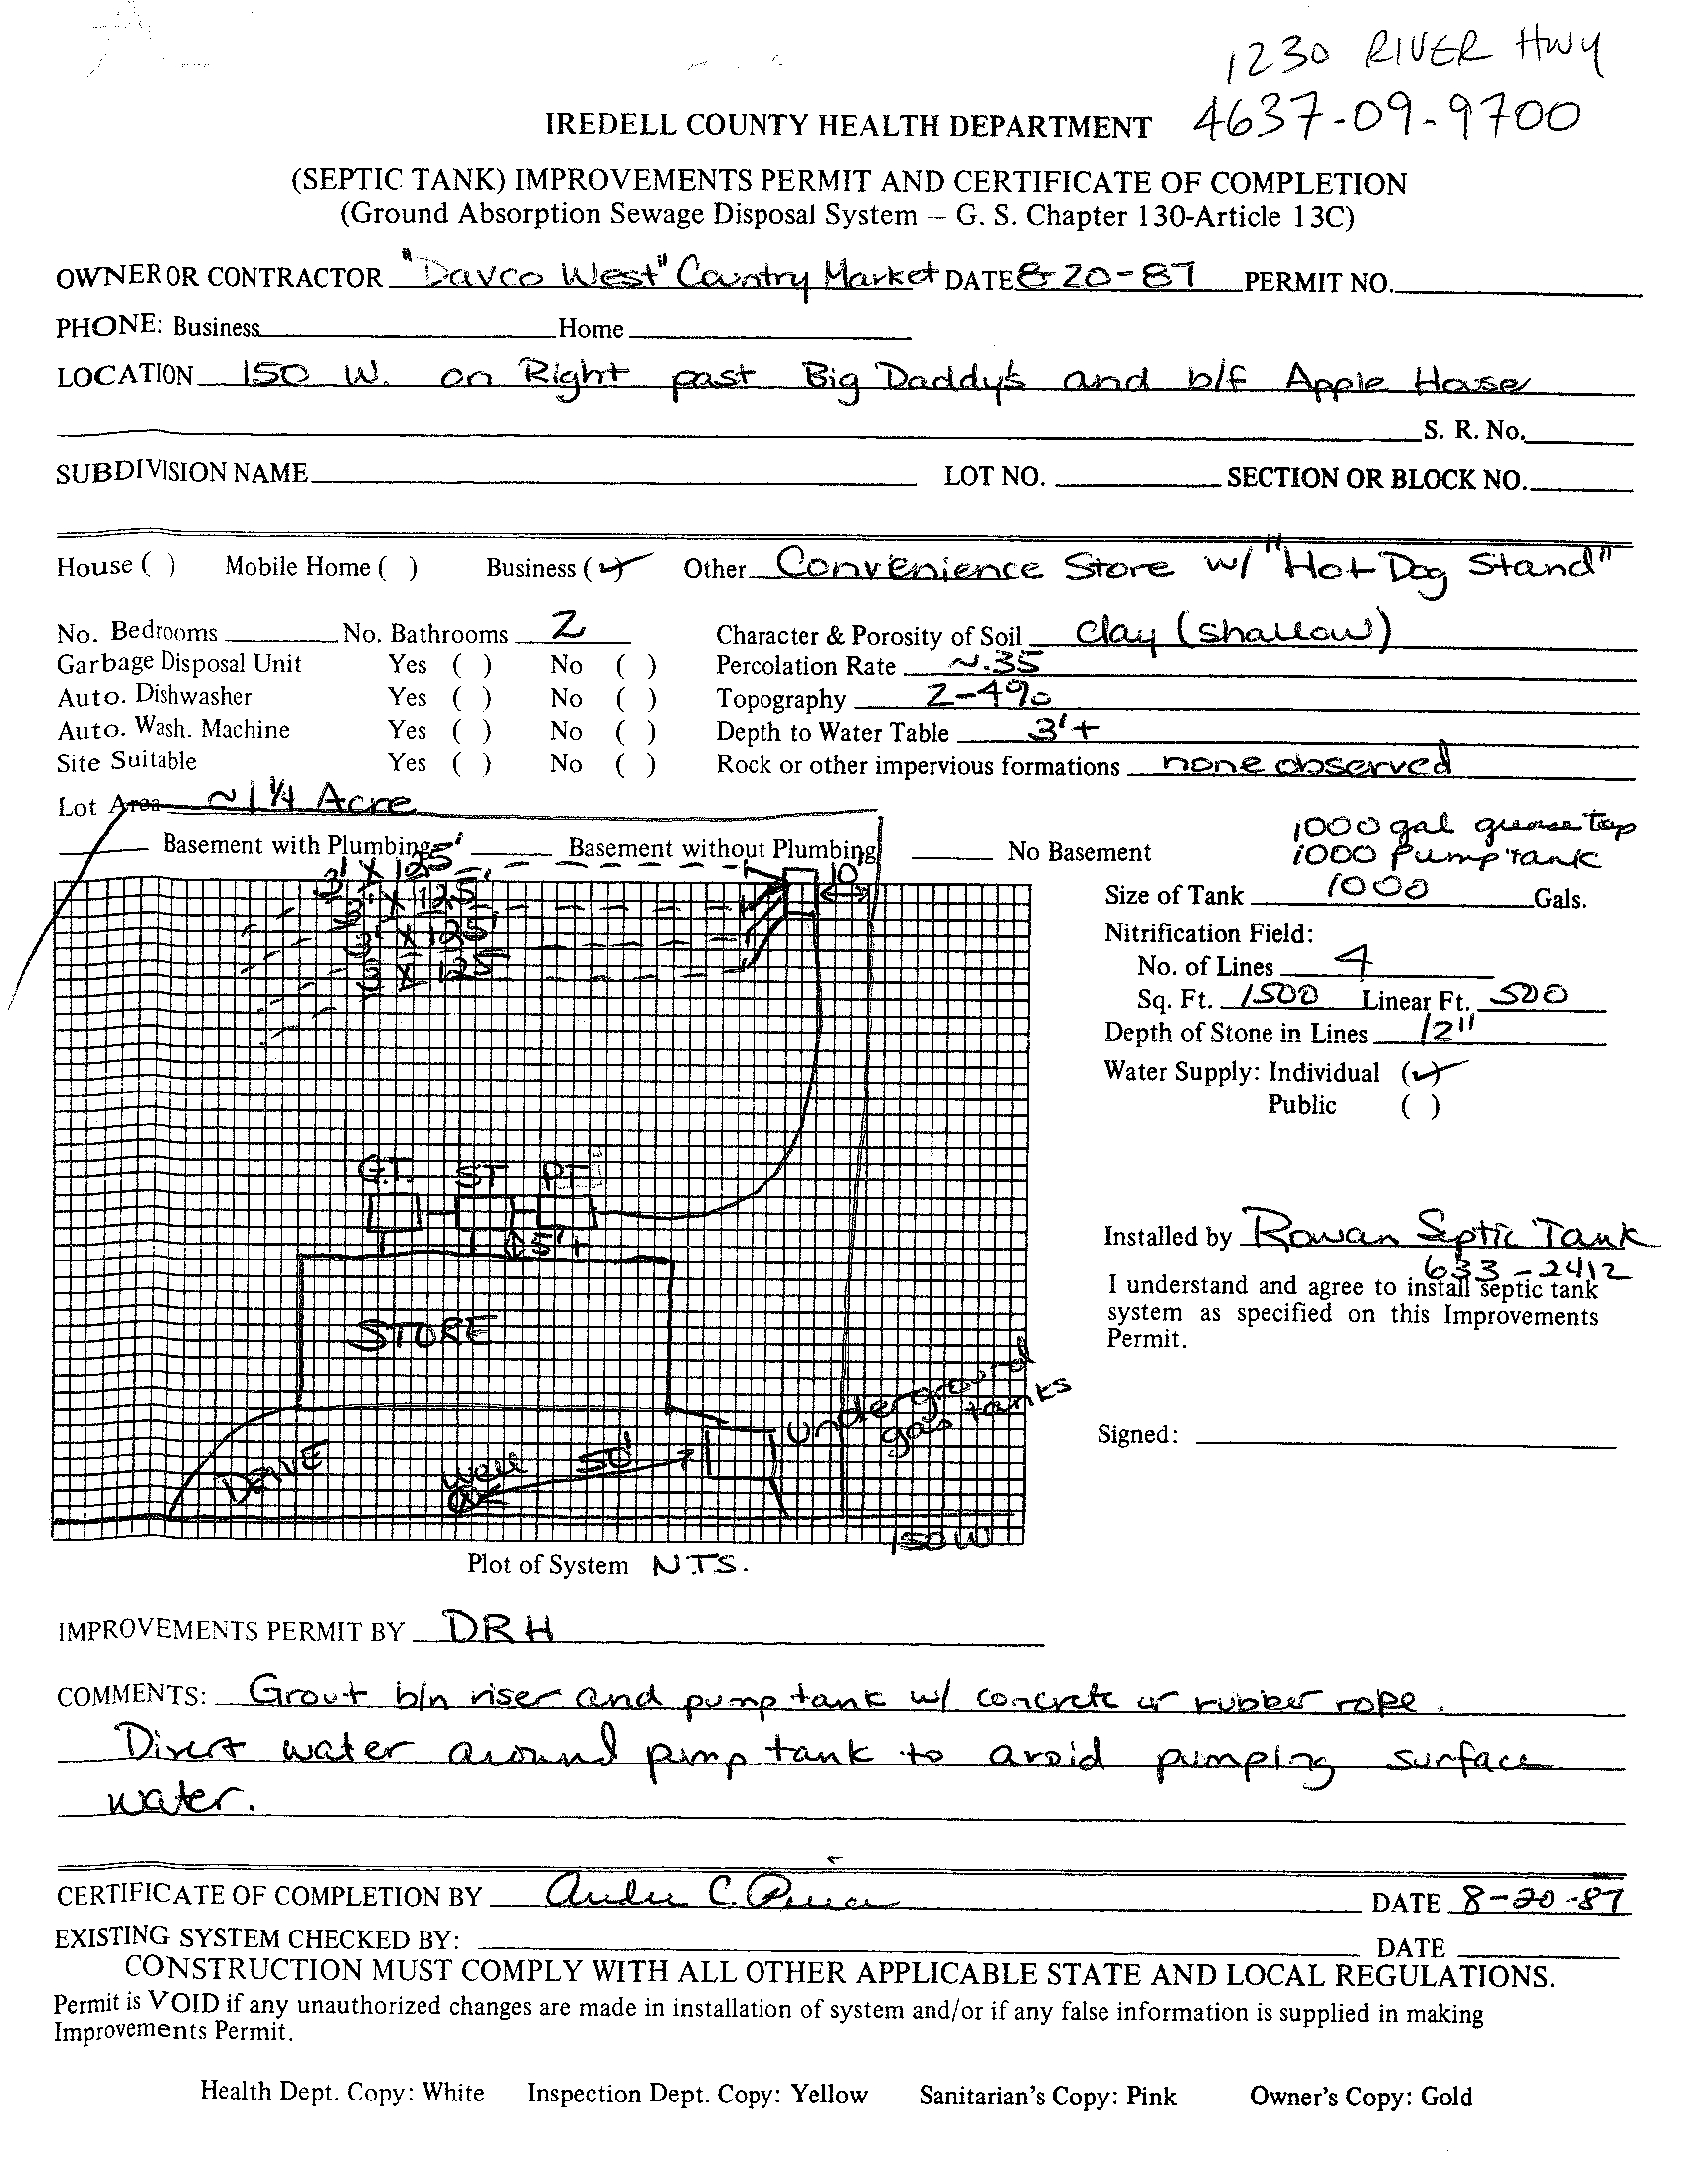 1230 RIVER HWY
IREDELL COUNTY HEALTH DEPARTMENT 4637-09-9700
(SEPTIC TANK) IMPROVEMENTS PERMIT AND CERTIFICATE OF COMPLETION
(Ground Absorption Sewage Disposal System — G. S. Chapter 130-Article 13C)
OWNER OR CONTRACTOR "Davco West" Country Market DATE 8-20-87 PERMIT NO.
PHONE: Business Home
LOCATION 150 W. on Right past Big Daddy's and b/f Apple House
S. R. No.
SUBDIVISION NAME LOT NO. SECTION OR BLOCK NO.
House ( ) Mobile Home ( ) Business (✓) Other Convenience Store w/ "Hot Dog Stand"
No. Bedrooms No. Bathrooms 2 Character & Porosity of Soil clay (shallow)
Garbage Disposal Unit Yes ( ) No ( ) Percolation Rate ~.35
Auto. Dishwasher Yes ( ) No ( ) Topography 2-4%
Auto. Wash. Machine Yes ( ) No ( ) Depth to Water Table 3'+
Site Suitable Yes ( ) No ( ) Rock or other impervious formations none observed
Lot Area ~1 1/4 Acre
Basement with Plumbing Basement without Plumbing No Basement
1000 gal grease trap
1000 Pump tank
Size of Tank 1000 Gals.
Nitrification Field:
No. of Lines 4
Sq. Ft. 1500 Linear Ft. 500
Depth of Stone in Lines 12"
Water Supply: Individual (✓)
Public ( )
3' X 125'
3' X 125'
3' X 125'
3' X 125'
10'
G.T. ST PT
5'+
STORE
underground
gas tanks
DRIVE
well 50'
150 W
Plot of System N.T.S.
Installed by Rowan Septic Tank
633-2412
I understand and agree to install septic tank
system as specified on this Improvements
Permit.
Signed:
IMPROVEMENTS PERMIT BY DRH
COMMENTS: Grout b/n riser and pump tank w/ concrete or rubber rope.
Divert water around pump tank to avoid pumping surface
water.
CERTIFICATE OF COMPLETION BY DATE 8-20-87
EXISTING SYSTEM CHECKED BY: DATE
CONSTRUCTION MUST COMPLY WITH ALL OTHER APPLICABLE STATE AND LOCAL REGULATIONS.
Permit is VOID if any unauthorized changes are made in installation of system and/or if any false information is supplied in making
Improvements Permit.
Health Dept. Copy: White Inspection Dept. Copy: Yellow Sanitarian's Copy: Pink Owner's Copy: Gold